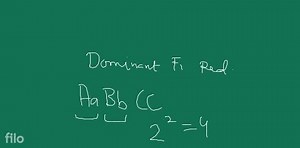 Dominant F₁ Red.
Aa Bb CC
2² = 4
filo